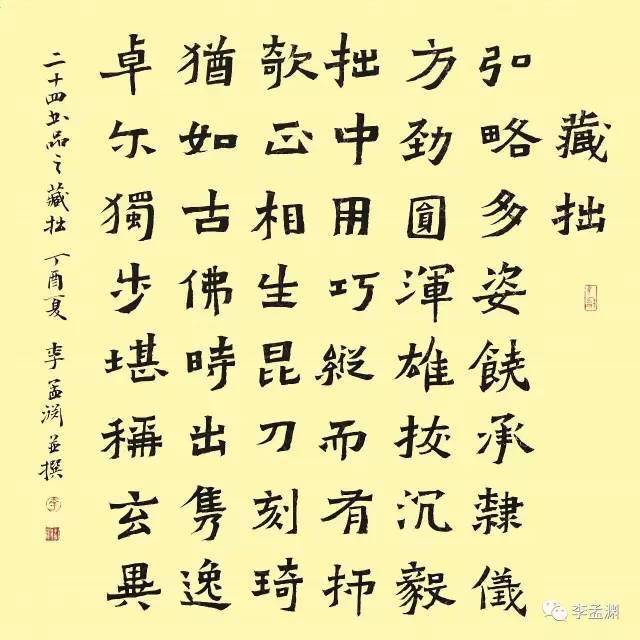 藏拙
弘略多姿饒承隸儀
方勁圓渾雄拔沉毅
拙中用巧縱而有
欹正相生昆刀刻琦
猶如古佛時出隽逸
卓尔獨步堪稱玄異
二十四书品之藏拙 丁酉夏 李孟渊並撰
李孟渊